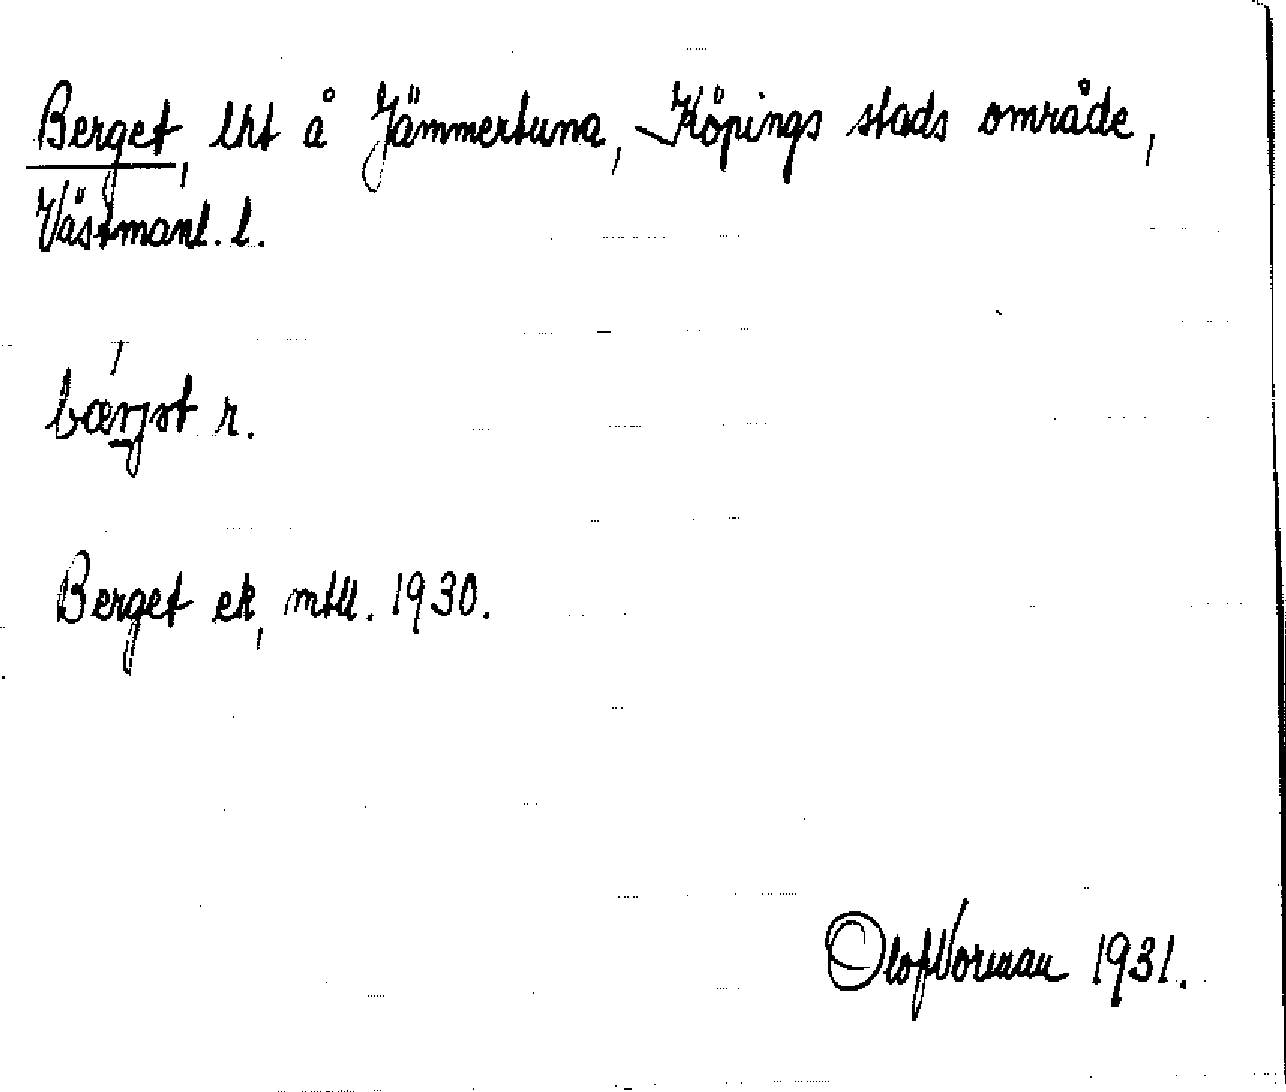 Berget, lht å Jämmertuna, Köpings stads område,
Västmanl. l.
bærjət r.
Berget ek, mtll. 1930.
Olof Norman 1931.